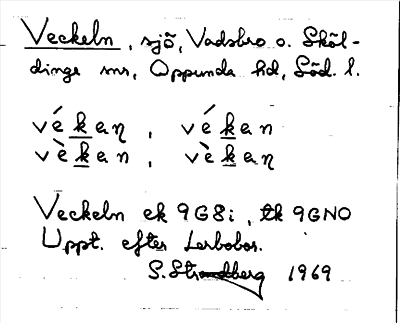 Veckeln, sjö, Vadsbro o. Sköl-
dinge snr, Oppunda hd, Söd. l.
vékaŋ, vékan
vèkan, vèkaŋ
Veckeln ek 9G8i, tk 9GNO
Uppt. efter Lerbobor.
S. Strandberg 1969